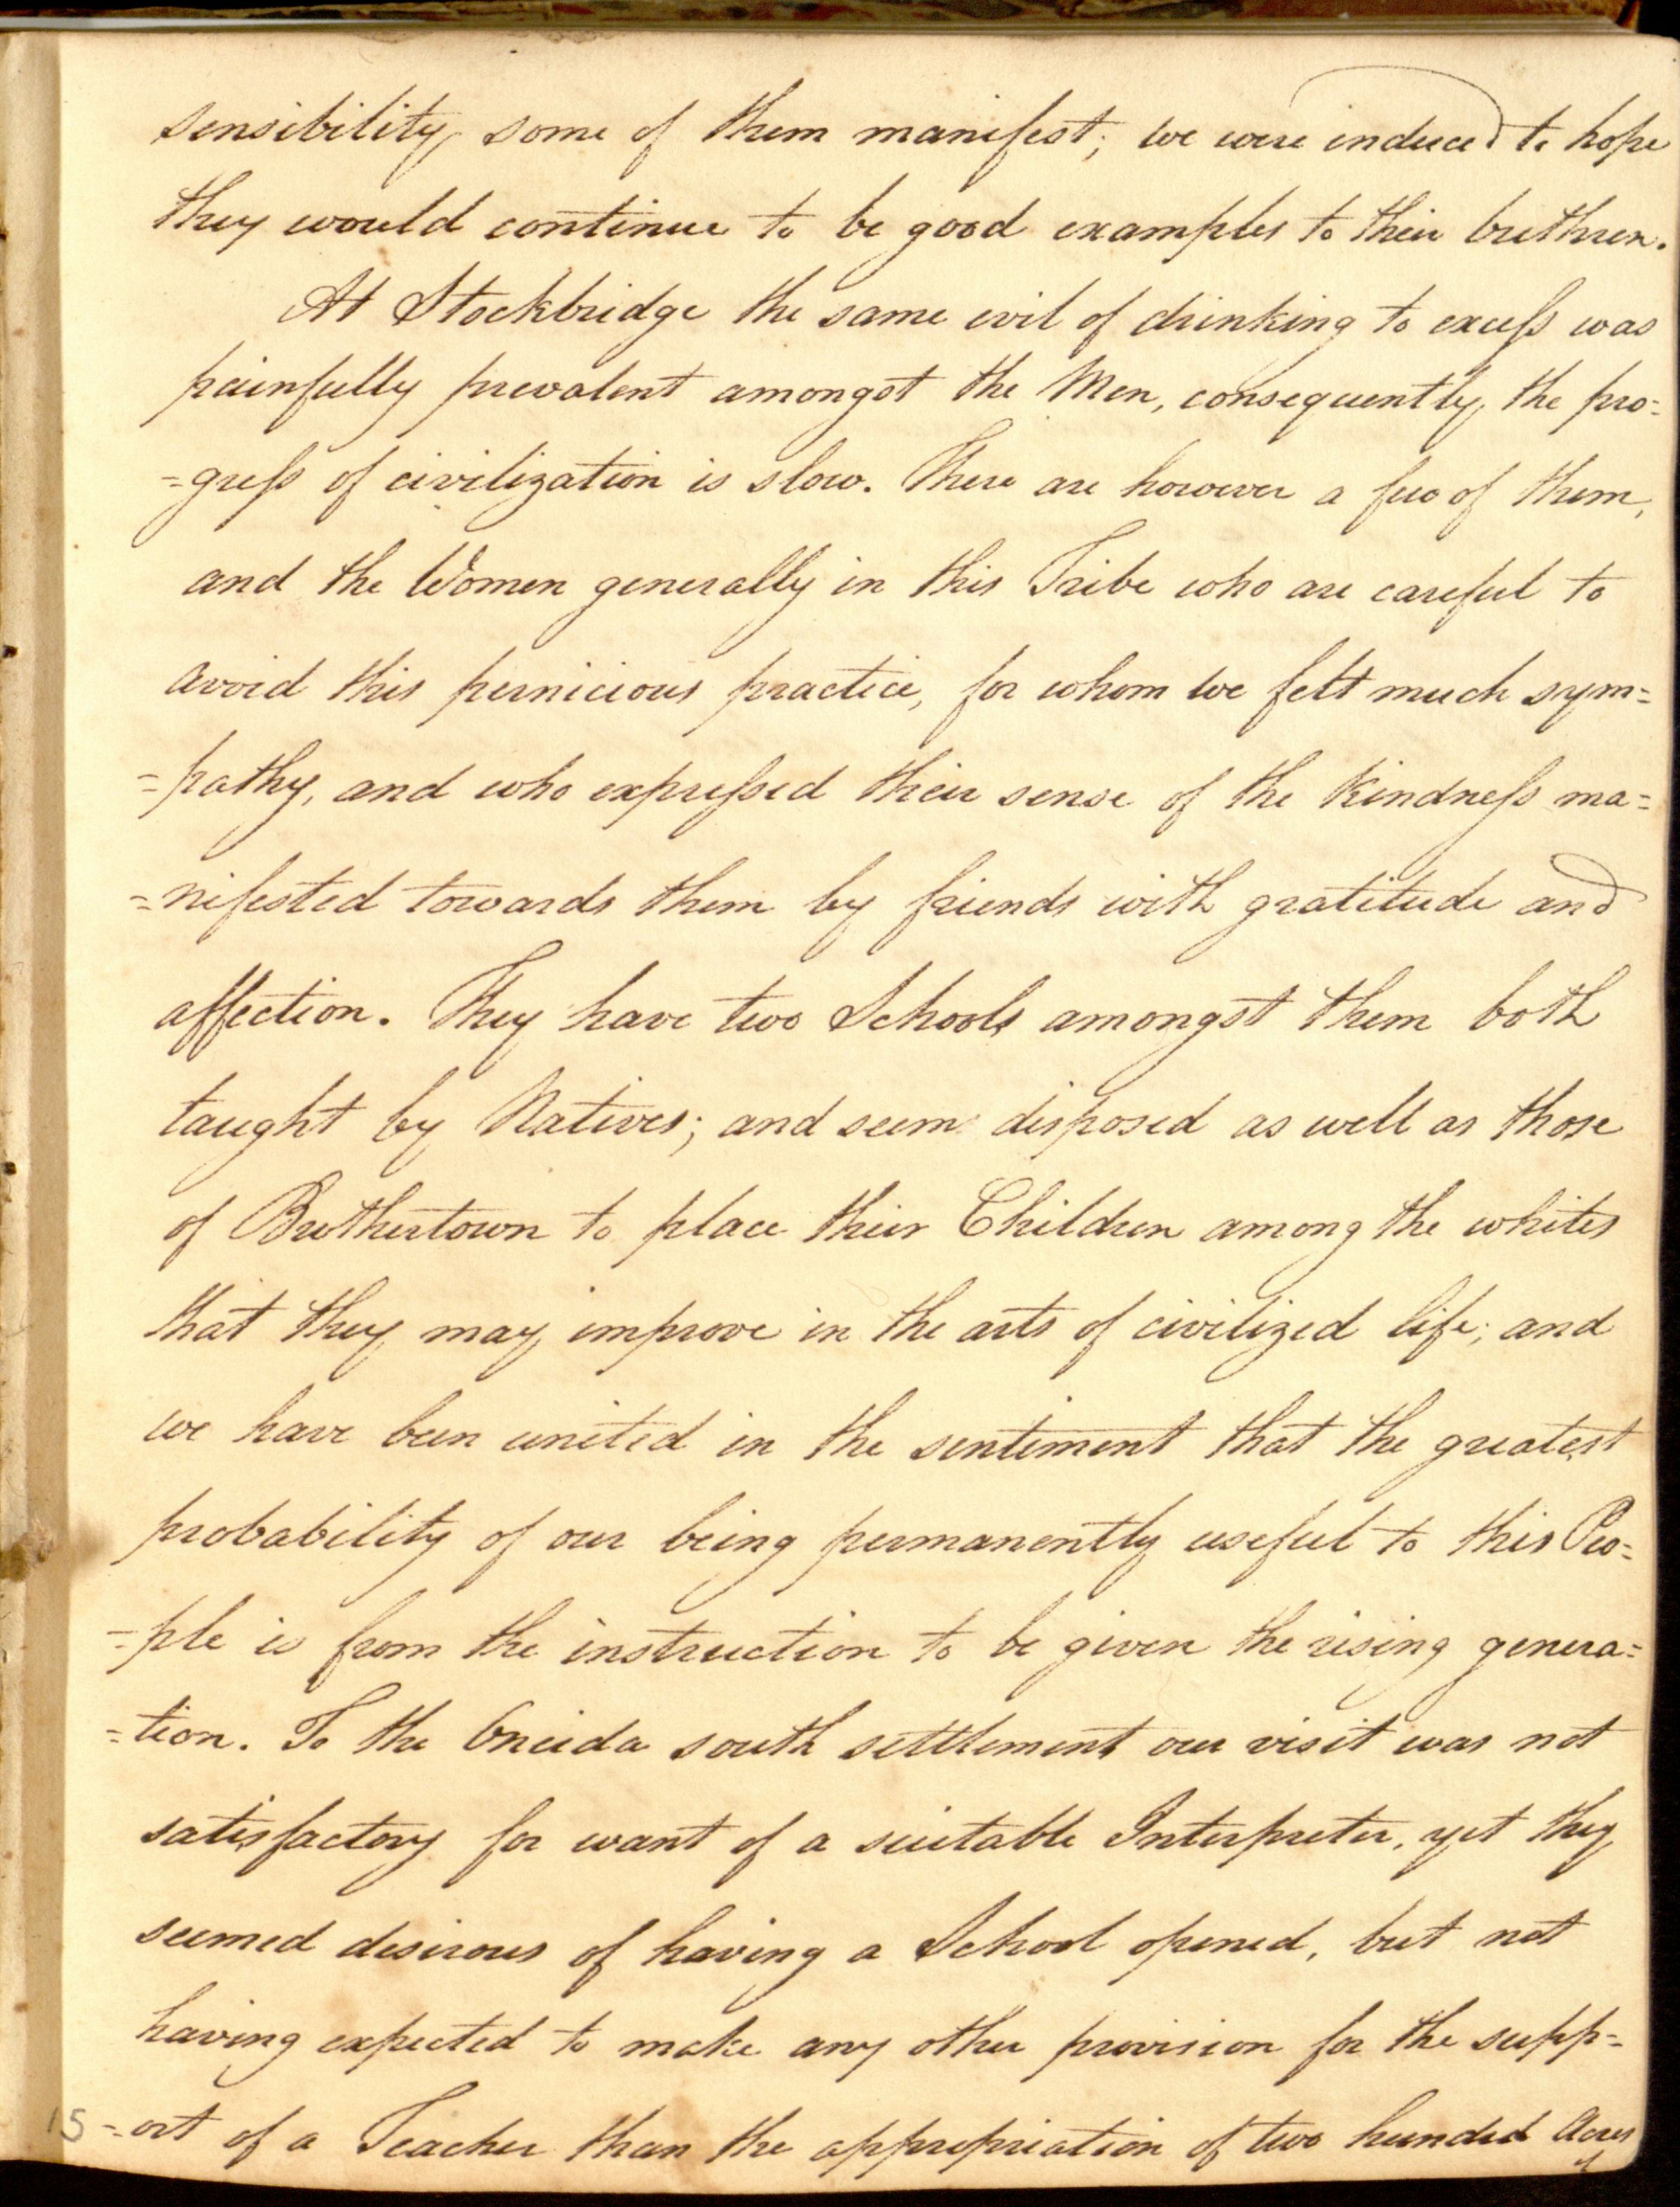 sensibility some of them manifest; we were induced to hope
they would continue to be good examples to their brethren.
At Stockbridge the same evil of drinking to excess was
painfully prevalent amongst the Men, consequently, the pro=
=gress of civilization is slow. There are however a few of them,
and the Women generally in this Tribe who are careful to
avoid this pernicious practice, for whom we felt much sym=
=pathy, and who expressed their sense of the kindness ma=
=nifested towards them by friends with gratitude and
affection. They have two Schools amongst them both
taught by Natives; and seem disposed as well as those
of Brothertown to place their Children among the whites
that they may improve in the arts of civilized life; and
we have been united in the sentiment that the greatest
probability of our being permanently useful to this Peo=
=ple is from the instruction to be given the rising genera=
=tion. To the Oneida south settlement our visit was not
satisfactory for want of a suitable Interpreter, yet they
seemed desirous of having a School opened, but not
having expected to make any other provision for the supp=
15 =ort of a Teacher than the appropriation of two hundred Acres